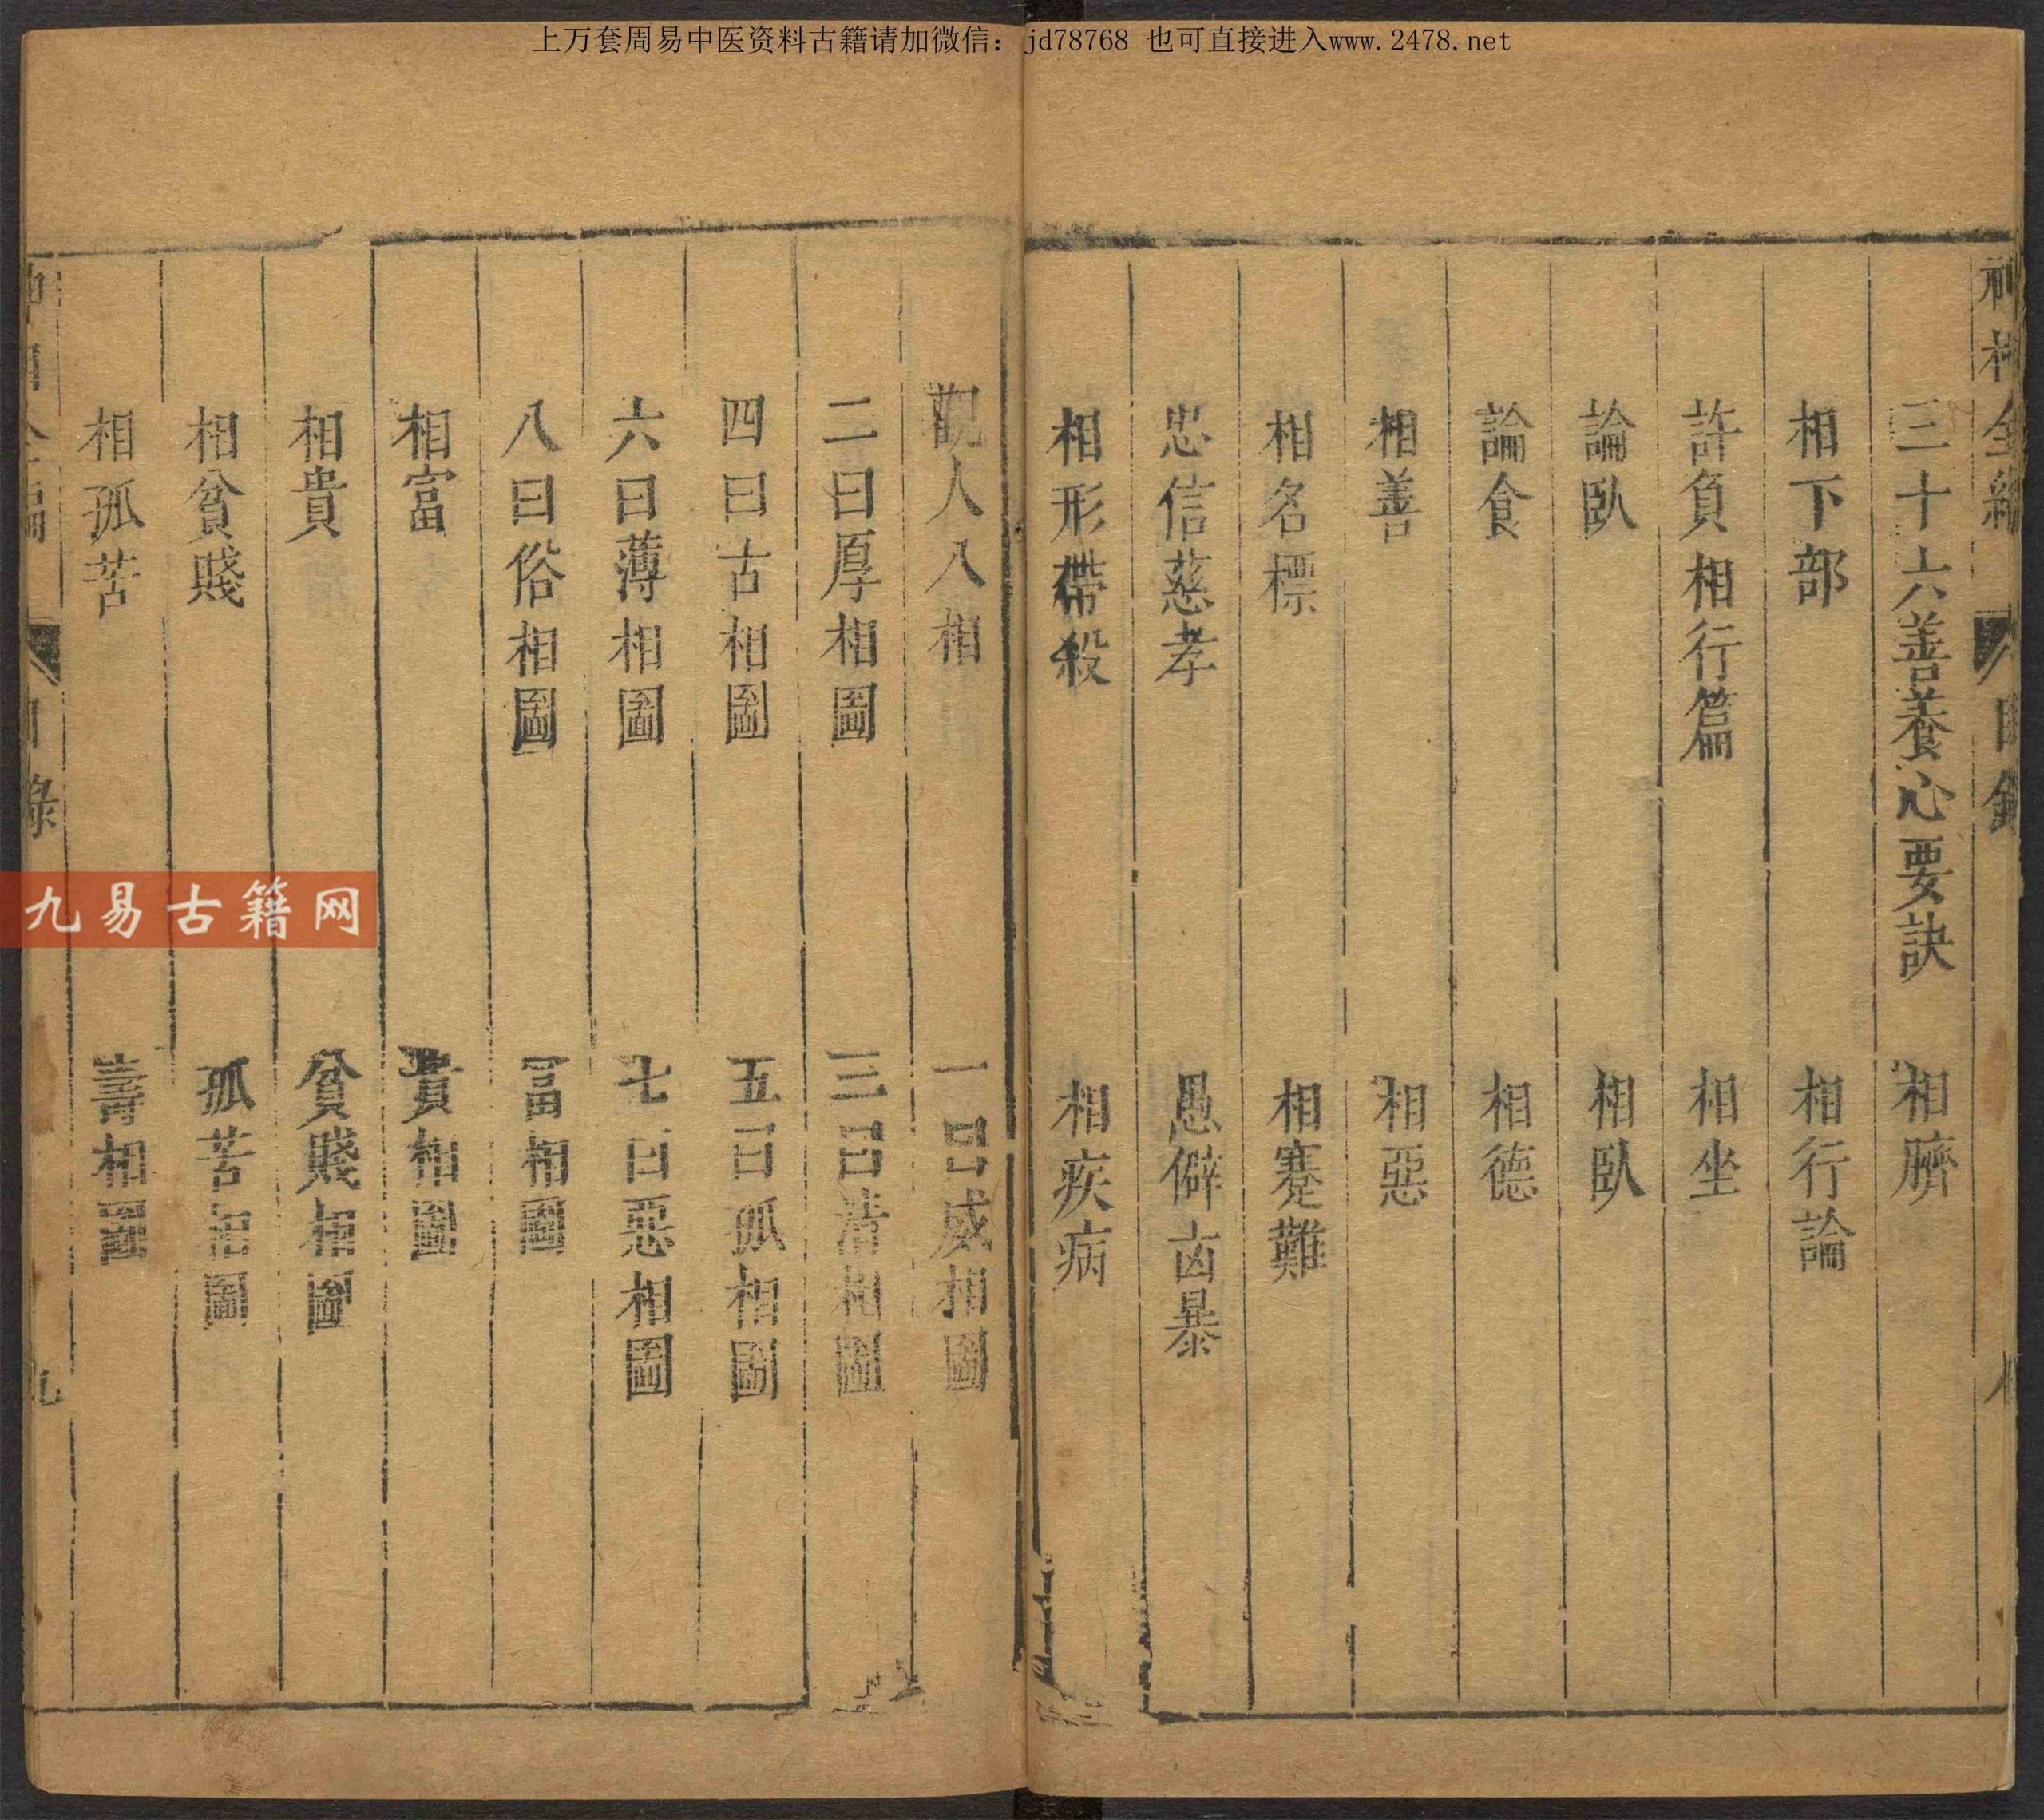 上万套周易中医资料古籍请加微信：jd78768 也可直接进入www.2478.net
神相全編 目錄 八
三十六善養心要訣 相臍
相下部 相行論
許負相行篇 相坐
論臥 相臥
論食 相德
相善 相惡
相名標 相蹇難
忠信慈孝 愚僻凶暴
相形帶殺 相疾病
觀人八相 一曰威相圖
二曰厚相圖 三曰清相圖
四曰古相圖 五曰孤相圖
六曰薄相圖 七曰惡相圖
八曰俗相圖 富相圖
相富 貴相圖
相貴 貧賤相圖
相貧賤 孤苦相圖
相孤苦 壽相圖
神相全編 目錄 九
九易古籍网